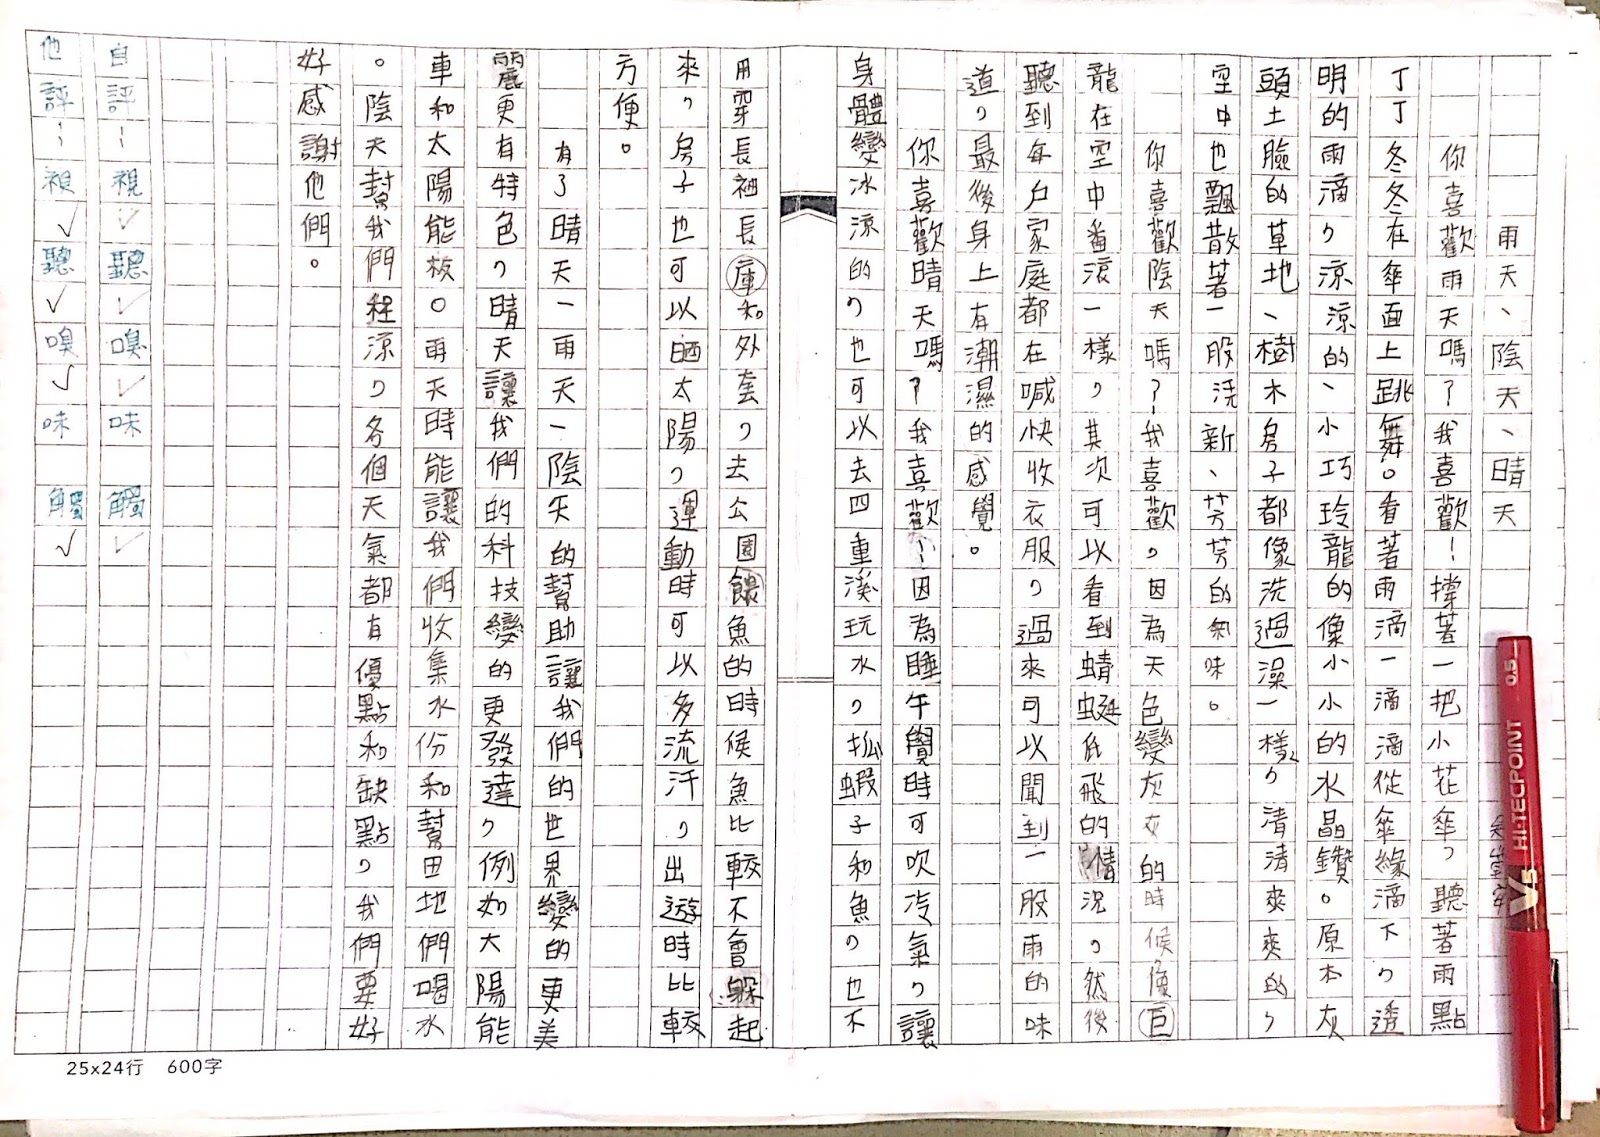 雨天、陰天、晴天
你喜歡雨天嗎？我喜歡！撐著一把小花傘，聽著雨點
丁丁冬冬在傘面上跳舞。看著雨滴一滴滴從傘緣滴下，透
明的雨滴，涼涼的、小巧玲龍的像小小的水晶鑽。原本灰
頭土臉的草地、樹木房子都像洗過澡一樣，清清爽爽的，
空中也飄散著一股洗新、芳芳的氣味。
你喜歡陰天嗎？我喜歡，因為天色變灰灰的時候像巨
龍在空中番滾一樣，其次可以看到蜻蜓低飛的情況，然後
聽到每戶家庭都在喊快收衣服，過來可以聞到一股雨的味
道，最後身上有潮濕的感覺。
你喜歡晴天嗎？我喜歡！因為睡午覺時可吹冷氣，讓
身體變冰涼的，也可以去四重溪玩水，抓蝦子和魚，也不
用穿長袖長庫和外套，去公園餵魚的時候魚比較不會躲起
來，房子也可以晒太陽，運動時可以多流汗，出遊時比較
方便。
有了晴天一雨天一陰天的幫助讓我們的世界變的更美
麗更有特色，晴天讓我們的科技變的更發達，例如大陽能
車和太陽能板。雨天時能讓我們收集水份和幫田地們喝水
。陰天幫我們程涼，各個天氣都有優點和缺點，我們要好
好感謝他們。
自評：視✓聽✓嗅✓味 觸✓
他評：視✓聽✓嗅✓味 觸✓
25x24行 600字
V5 HI-TECPOINT 0.5